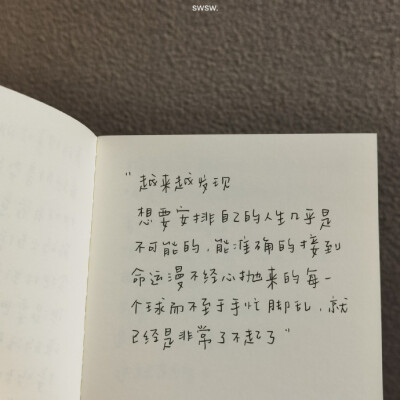 swsw.
“越来越发现
想要安排自己的人生几乎是
不可能的,能准确的接到
命运漫不经心抛来的每一
个球而不至于手忙脚乱,就
已经是非常了不起了”